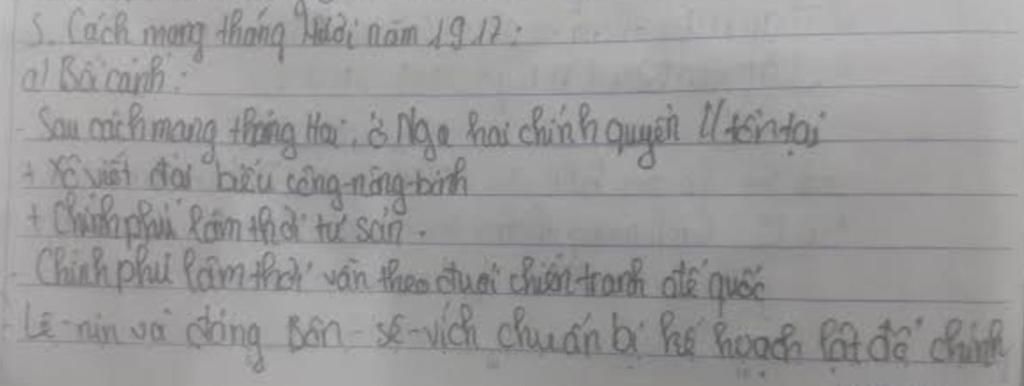 3. Cách mạng tháng Mười năm 1917:
a) Bối cảnh:
- Sau cách mạng tháng Hai, ở Nga hai chính quyền // tồn tại
+ Xô viết đại biểu công-nông-binh
+ Chính phủ lâm thời tư sản.
- Chính phủ lâm thời vẫn theo đuổi chiến tranh đế quốc
- Lê-nin và đảng Bôn-sê-vích chuẩn bị kế hoạch lật đổ chính